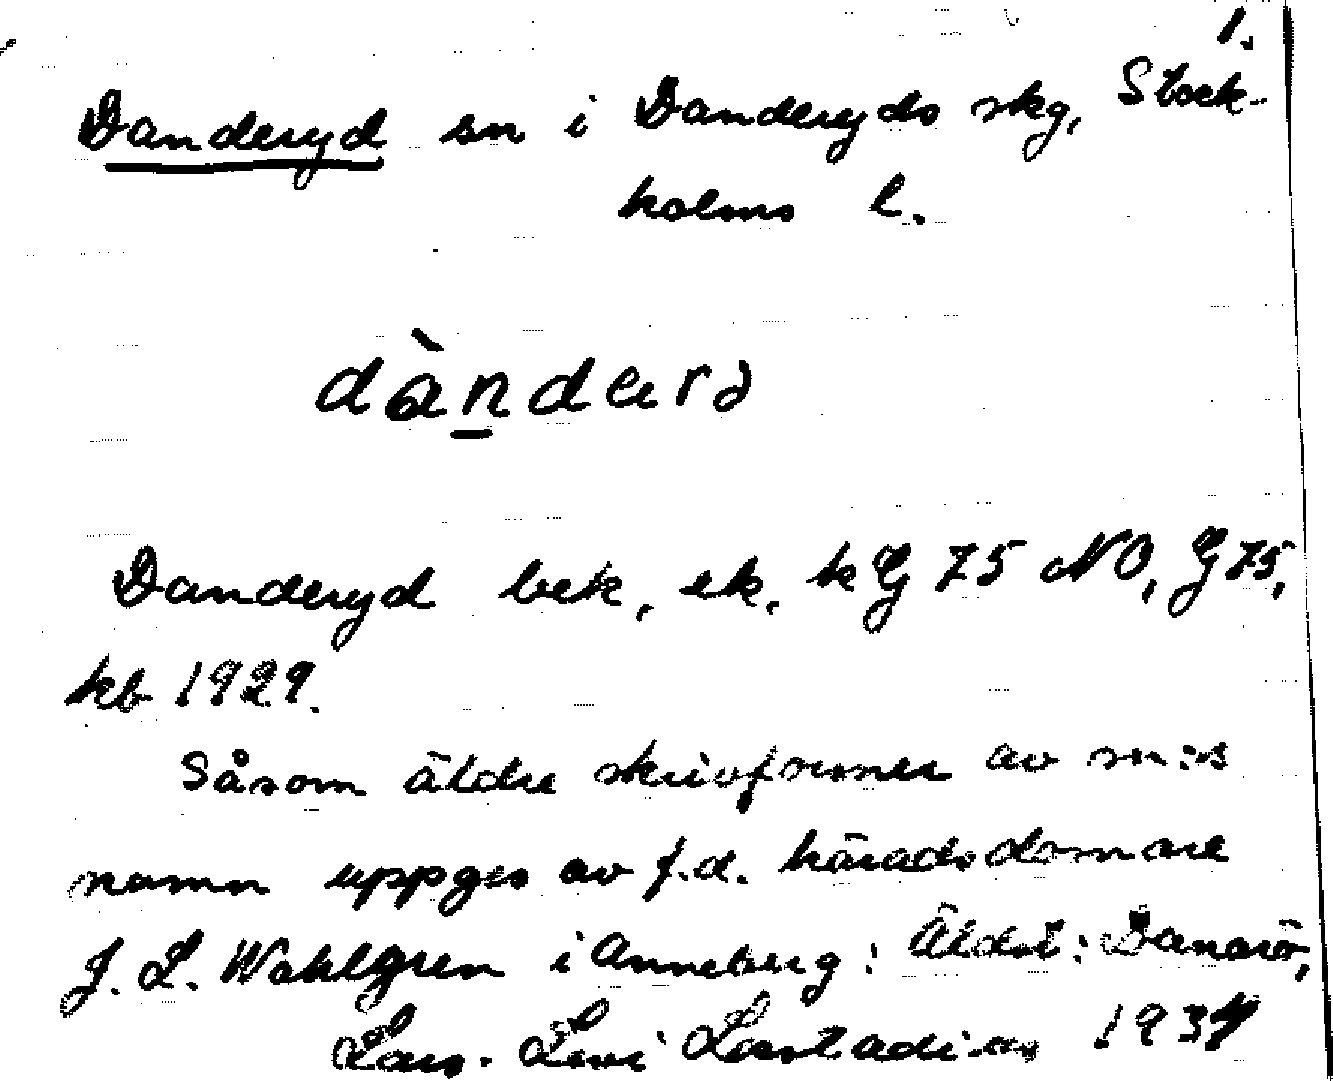 1.
Danderyd sn i Danderyds skg, Stock-
holms l.
dànderd
Danderyd bek, ek, k G 75 NO, G 75,
kb 1929.
Såsom äldre skrivformer av sn:s
namn uppges av f.d. häradsdomare
J. L. Wahlgren i Anneberg: Äldst: Danarö,
Lars-Levi Læstadius 1937